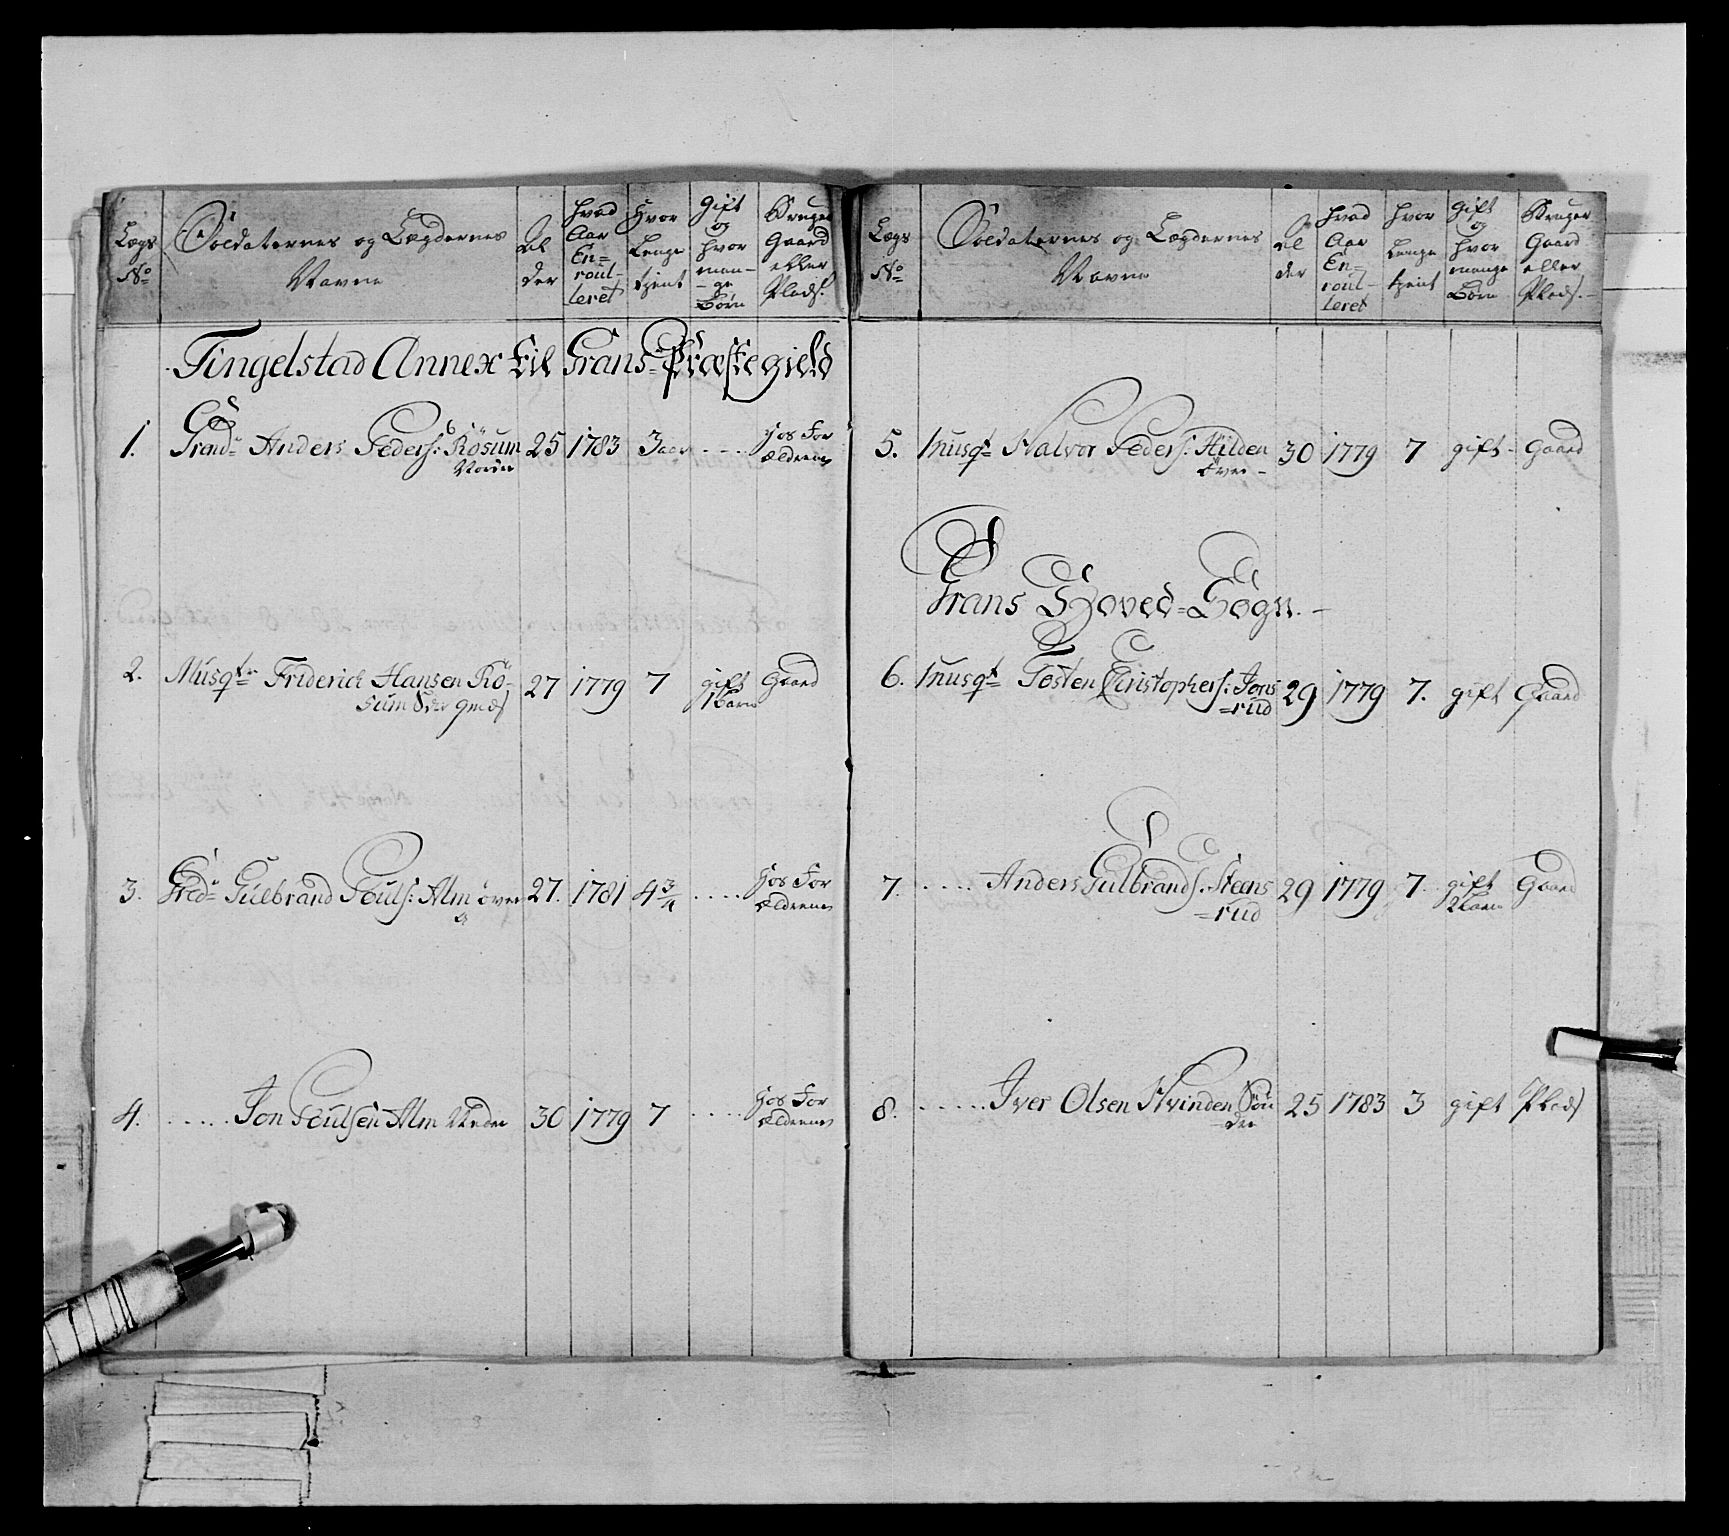 Lægs No
Soldaternes og Lægdernes Navne
Alder
hvad Aar Enroulleret
Hvor Længe tient
Gift og hvor mange Børn
Bruger Gaard eller Plads.
Tingelstad Annex til Grans Præstegield
1. Grend. Anders Peders: Røsum 25 1783 3 aar ....  hos For
Nordre ældrene
2. Musqt. Friderich Hansen Rø- 27 1779 7 gift Gaard
sum 1 Barn
3. Gulbrand Pouls: Alm øvre 27. 1781 4 3/4 ..... hos For
ældrene
4. ...... Jon Poulsen Alm Nedre 30 1779 7 ..... hos For
ældrene
Lægs No
Soldaternes og Lægdernes Navne
Alder
hvad Aar Enroulleret
Hvor Længe tient
Gift og hvor mange Børn
Bruger Gaard eller Plads.
5. Musqt Halvor Peders: Hilden 30 1779 7 gift - Gaard
Øvre -
Grans Hoved=Sogn. -
6. Musqt Tosten Christophers: Jons 29 1779 7. gift Gaard
=rud
7. ..... Anders Gulbrands: Steens 29 1779 7. gift Gaard
=rud 2 børn
8. ...... Iver Olsen Hvinden Søn 25 1783 3 gift Plads
dre